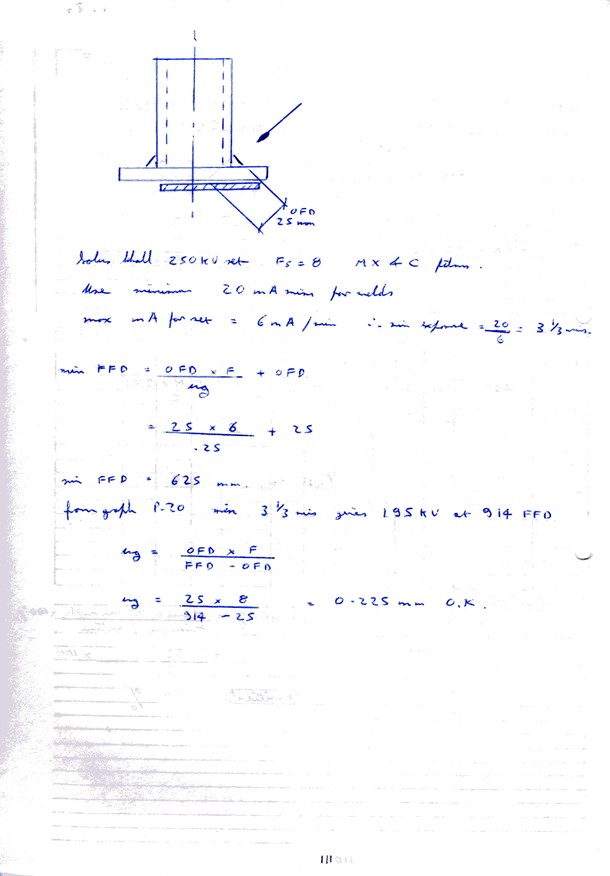 OFD
25 mm
Solus Shall 250 KV set Fs = 8 MX & C films.
Use minimum 20 mA mins for welds
max mA for set = 6 mA/min ∴ min exposure = 20/6 = 3 1/3 mins.
min FFD = OFD x F / ug + OFD
= 25 x 6 / .25 + 25
min FFD = 625 mm.
from graph P-20 min 3 1/3 mis gives 195 KV at 914 FFD
ug = OFD x F / FFD - OFD
ug = 25 x 8 / 914 - 25 = 0.225 mm O.K.